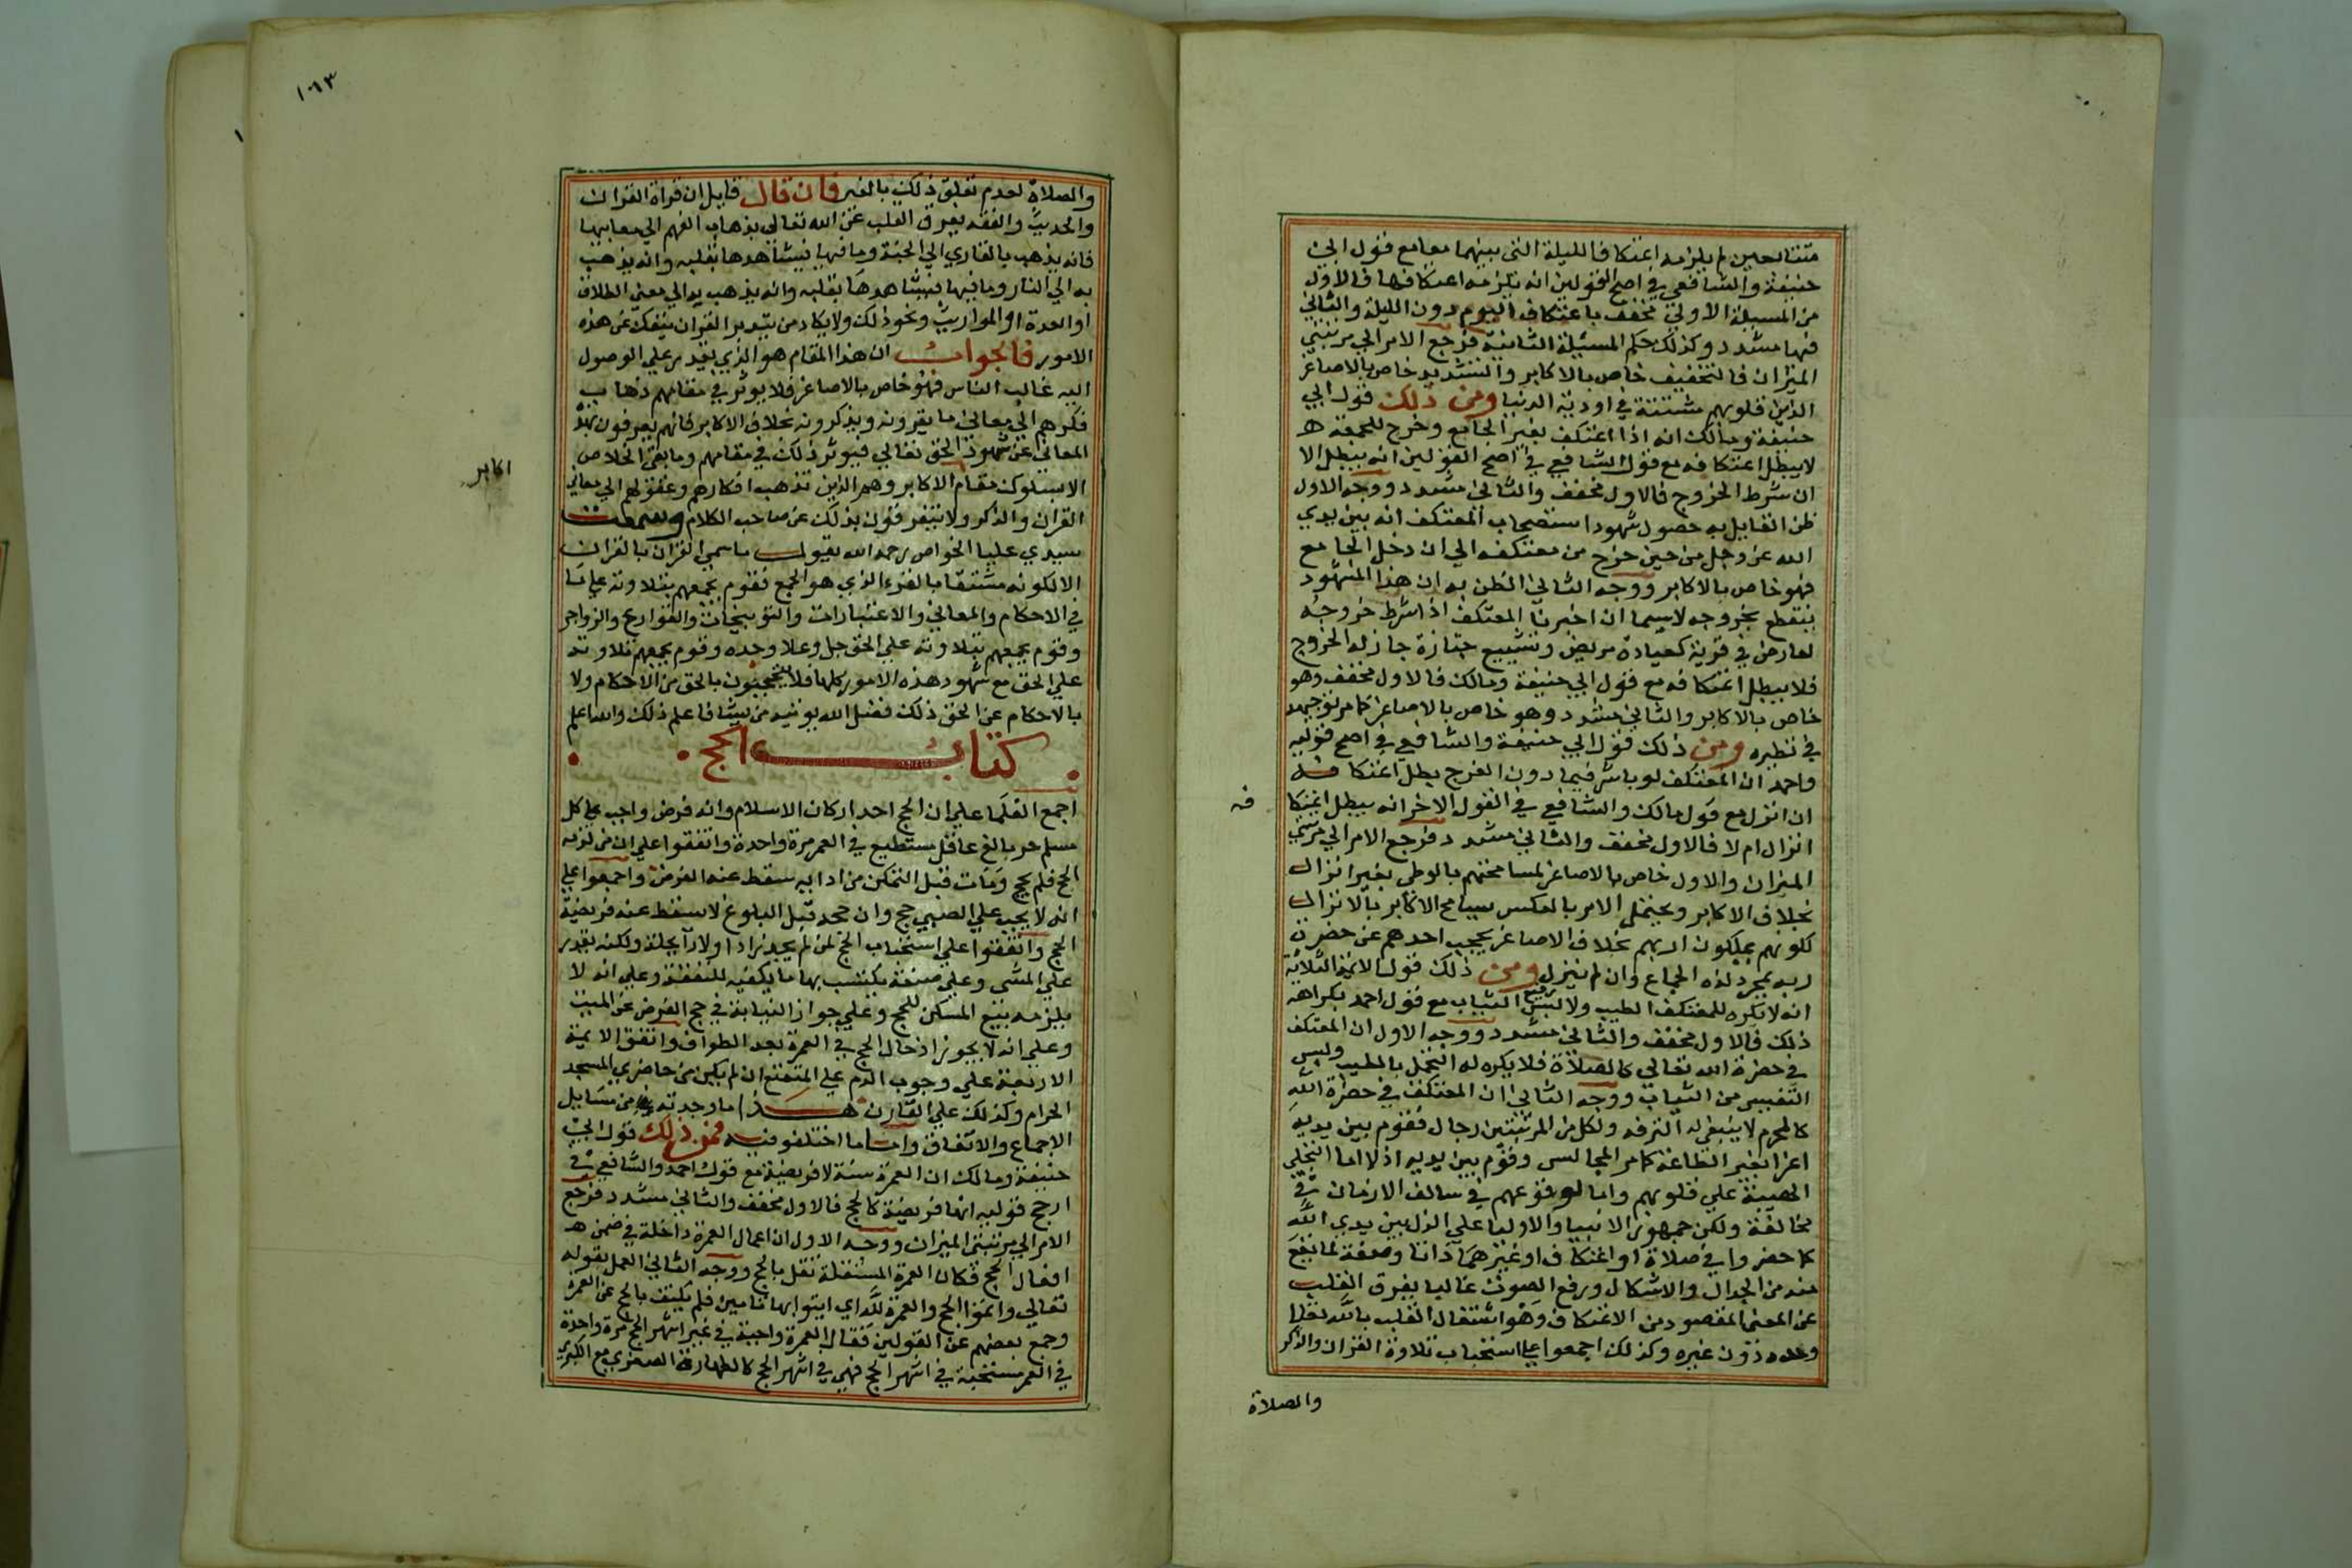 متتابعين لم يلزمه اعتكاف الليلة التى بينهما معا مع قول ابي
حنيفة والشافعي في اصح القولين انه يلزمه اعتكافها فالاول
من المسيلة الاولى مخفف باعتكاف اليوم دون الليلة والثاني
فيها مشدد وكذلك حكم المسئلة الثانية فرجع الامر الي مرتبتي
الميزان فالتخفيف خاص بالاكابر والتشديد خاص بالاصاغر
الذين قلوبهم مشتتة في اودية الدنيا ومن ذلك قول ابي
حنيفة ومالك انه اذا اعتكف بغير الجامع وخرج للجمعة
لا يبطل اعتكافه مع قول الشافعي في اصح القولين انه يبطل الا
ان شرط الخروج فالاول مخفف والثاني مشدد ووجه الاول
ظن القايل به حصول شهود استصحاب المعتكف انه بين يدي
الله عز وجل من حين خرج من معتكفه الي ان دخل الجامع
فهو خاص بالاكابر ووجه الثاني الظن به ان هذا المشهود
ينقطع بخروجه لا سيما ان اخبرنا المعتكف اذا شرط خروجه
لعارض في قربة كعيادة مريض وتشييع جنازة جاز له الخروج
فلا يبطل اعتكافه مع قول ابي حنيفة ومالك فالاول مخفف وهو
خاص بالاكابر والثاني مشدد وهو خاص بالاصاغر كما مر توجيهه
في نظيره ومن ذلك قول ابي حنيفة والشافعي في اصح قوليه
واحمد ان المعتكف لو باشر فيما دون الفرج بطل اعتكافه
فه
ان انزل مع قول مالك والشافعي في القول الاخر انه يبطل اعتكا
انزل ام لا فالاول مخفف والثاني مشدد فرجع الامر الي مرتبتي
الميزان والاول خاص بالاصاغر لمسامحتهم بالوطي بغير انزال
بخلاف الاكابر ويحتمل الامر بالعكس يسامح الاكابر بالانزال
لكونهم يملكون اربهم بخلاف الاصاغر يحجب احدهم عن حضرة
ربه بمجرد لذة الجماع وان لم ينزل ومن ذلك قول الايمة الثلاثة
انه لا يكره للمعتكف الطيب ولا لبس رفيع الثياب مع قول احمد بكراهة
ذلك فالاول مخفف والثاني مشدد ووجه الاول ان المعتكف
في حضرة الله تعالي كالصلاة فلا يكره له التجمل بالطيب ولبس
النفيس من الثياب ووجه الثاني ان المعتكف في حضرة الله
كالمحرم لا ينبغي له الترفه ولكل من المرتبتين رجال فقوم بين يديه
اعزا بغير الطاعة كامر المجالس وقوم بين يديه اذلا اما لتجلي
الهيبة علي قلوبهم واما لوقوعهم في سالف الازمان في
مخالفة ولكن جمهور الانبيا والاوليا علي الذل بين يدي الله
كلما حضروا في صلاة او اعتكاف او غيرهما ذاتا وصفة لما يقع
منه من الجدال والاشكال ورفع الصوت غالبا يفرق القلب
عن المعنى المقصود من الاعتكاف وهو اشتغال القلب بالله تعالي
وحده دون غيره وكذلك اجمعوا علي استحباب تلاوة القران والذكر
والصلاة
١٠٦٣
والصلاة لعدم تعلق ذلك بالغير فان قال قايل ان قراة القران
والحديث والفقه يفرق القلب عن الله تعالي بذهاب الفهم الي معانيها
فانه يذهب بالقاري الي الجنة وما فيها فيشاهدها بقلبه وانه يذهب
به الي النار وما فيها فيشاهدها بقلبه وانه يذهب به الي معنى الطلاق
او العدة او المواريث ونحو ذلك ولا يكاد من يتدبر القران ينفك عن هذه
الامور فالجواب ان هذا المقام هو الذي يقدر علي الوصول
اليه غالب الناس فهو خاص بالاصاغر فلا يوثر في مقامهم ذهاب
فكرهم الي معاني ما يقرونه ويذكرونه بخلاف الاكابر فانهم يعرفون بهذه
المعاني عن شهود الحق تعالي فيوثر ذلك في مقامهم وما بقي الخلاص
الا بسلوك مقام الاكابر وهم الذين تذهب افكارهم وعقولهم الي معاني
اكابر
القران والذكر ولا يتفرقون بذلك عن صاحب الكلام وسمعت
سيدي عليا الخواص رحمه الله يقول ما سمي القران بالقران
الا لكونه مشتقا بالقرء الذي هو الجمع فقوم يجمعهم بتلاوته علي ما
في الاحكام والمعاني والاعتبارات والتوبيخات والقوارع والزواجر
وقوم يجمعهم بتلاوته علي الحق جل وعلا وحده وقوم يجمعهم تلاوته
علي الحق مع شهود هذه الامور كلها فلا يحجبون بالحق عن الاحكام ولا
بالاحكام عن الحق ذلك فضل الله يوتيه من يشا فاعلم ذلك والله اعلم
كتاب الحج
اجمع العلما علي ان الحج احد اركان الاسلام وانه فرض واجب علي كل
مسلم حر بالغ عاقل مستطيع في العمر مرة واحدة واتفقوا علي ان من لزمه
الحج فلم يحج ومات قبل التمكن من ادايه سقط عنه الفرض واجمعوا علي
انه لا يجب علي الصبي حج وان حجه قبل البلوغ لا يسقط عنه فريضة
الحج واتفقوا علي استحباب الحج لمن لم يجد زادا ولا راحلة ولكنه يقدر
علي المشي وعلي صنعة يكتسب بها ما يكفيه للنفقة وعلي انه لا
يلزمه بيع المسكن للحج وعلي جواز النيابة في حج الفرض عن الميت
وعلي انه لا يجوز ادخال الحج في العمرة بعد الطواف واتفق الايمة
الاربعة علي وجوب الدم علي المتمتع ان لم يكن من حاضري المسجد
الحرام وكذلك علي القارن هذا ما وجدته من مسايل
الاجماع والاتفاق واما ما اختلفوا فيه فمن ذلك قول ابي
حنيفة ومالك ان العمرة سنة لا فريضة مع قول احمد والشافعي في
ارجح قوليه انها فريضة كالحج فالاول مخفف والثاني مشدد فرجع
الامر الي مرتبتي الميزان ووجه الاول ان اعمال العمرة داخلة في ضمن
افعال الحج فكان العمرة المستقلة نفل بالحج ووجه الثاني العمل بقوله
تعالي واتموا الحج والعمرة لله اي ايتوا بهما تامين فلم يكتف بالحج عن العمرة
وجمع بعضهم عن القولين فقال العمرة واجبة في غير اشهر الحج مرة واحدة
في العمر مستحبة في اشهر الحج فهي في اشهر الحج كالطهارة الصغري مع الكبري